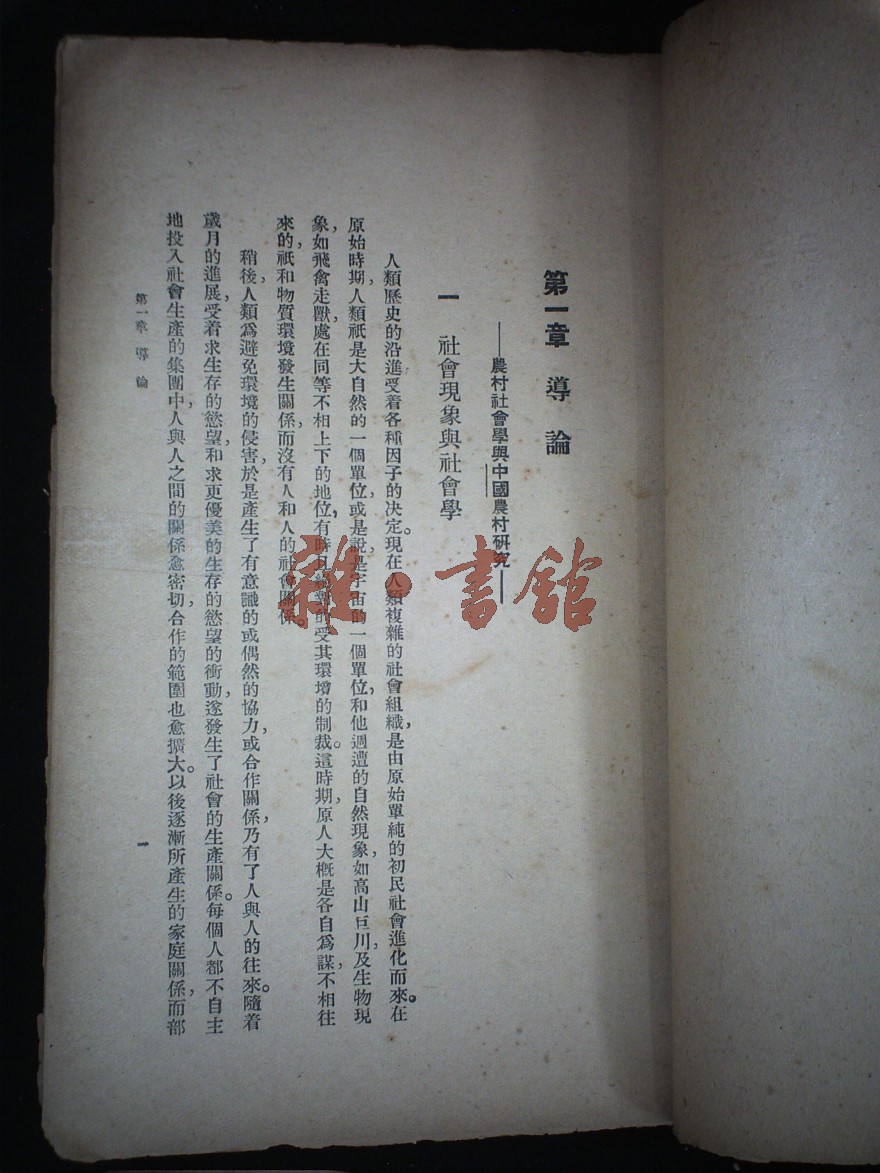 第一章 導論
——農村社會學與中國農村研究——
一 社會現象與社會學
人類歷史的沿進受着各種因子的決定。現在人類複雜的社會組織，是由原始單純的初民社會進化而來。在
原始時期，人類祇是大自然的一個單位，或是說是宇宙的一個單位，和他週遭的自然現象，如高山巨川，及生物現
象，如飛禽走獸，處在同等不相上下的地位，有時且絕對的受其環增的制裁。這時期，原人大概是各自爲謀，不相往
來的，祇和物質環境發生關係，而沒有人和人的社會關係。
稍後，人類爲避免環境的侵害，於是產生了有意識的或偶然的協力，或合作關係，乃有了人與人的往來。隨着
歲月的進展，受着求生存的慾望，和求更優美的生存的慾望的衝動，遂發生了社會的生產關係。每個人都不自主
地投入社會生產的集團中，人與人之間的關係愈密切，合作的範圍也愈擴大。以後逐漸所產生的家庭關係，而部
第一章 導論
一
雜·書館